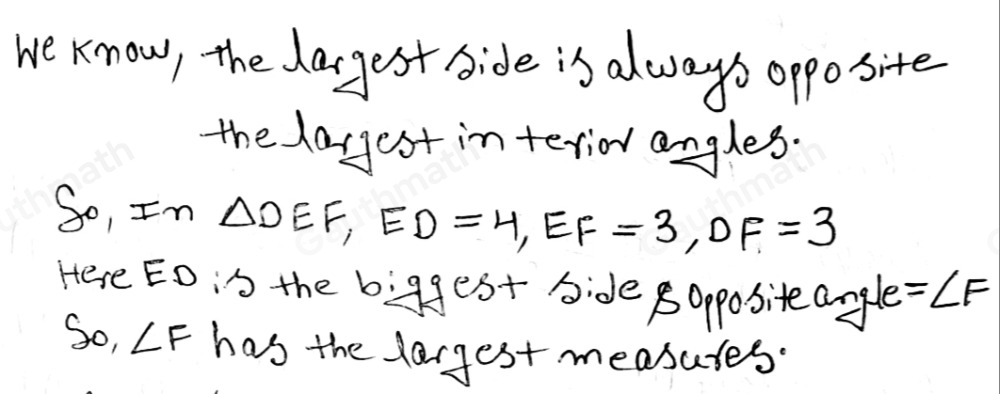 We know, the largest side is always opposite
the largest interior angles.
So, In △DEF, ED = 4, EF = 3, DF = 3
Here ED is the biggest side & Opposite angle = ∠F
So, ∠F has the largest measures.